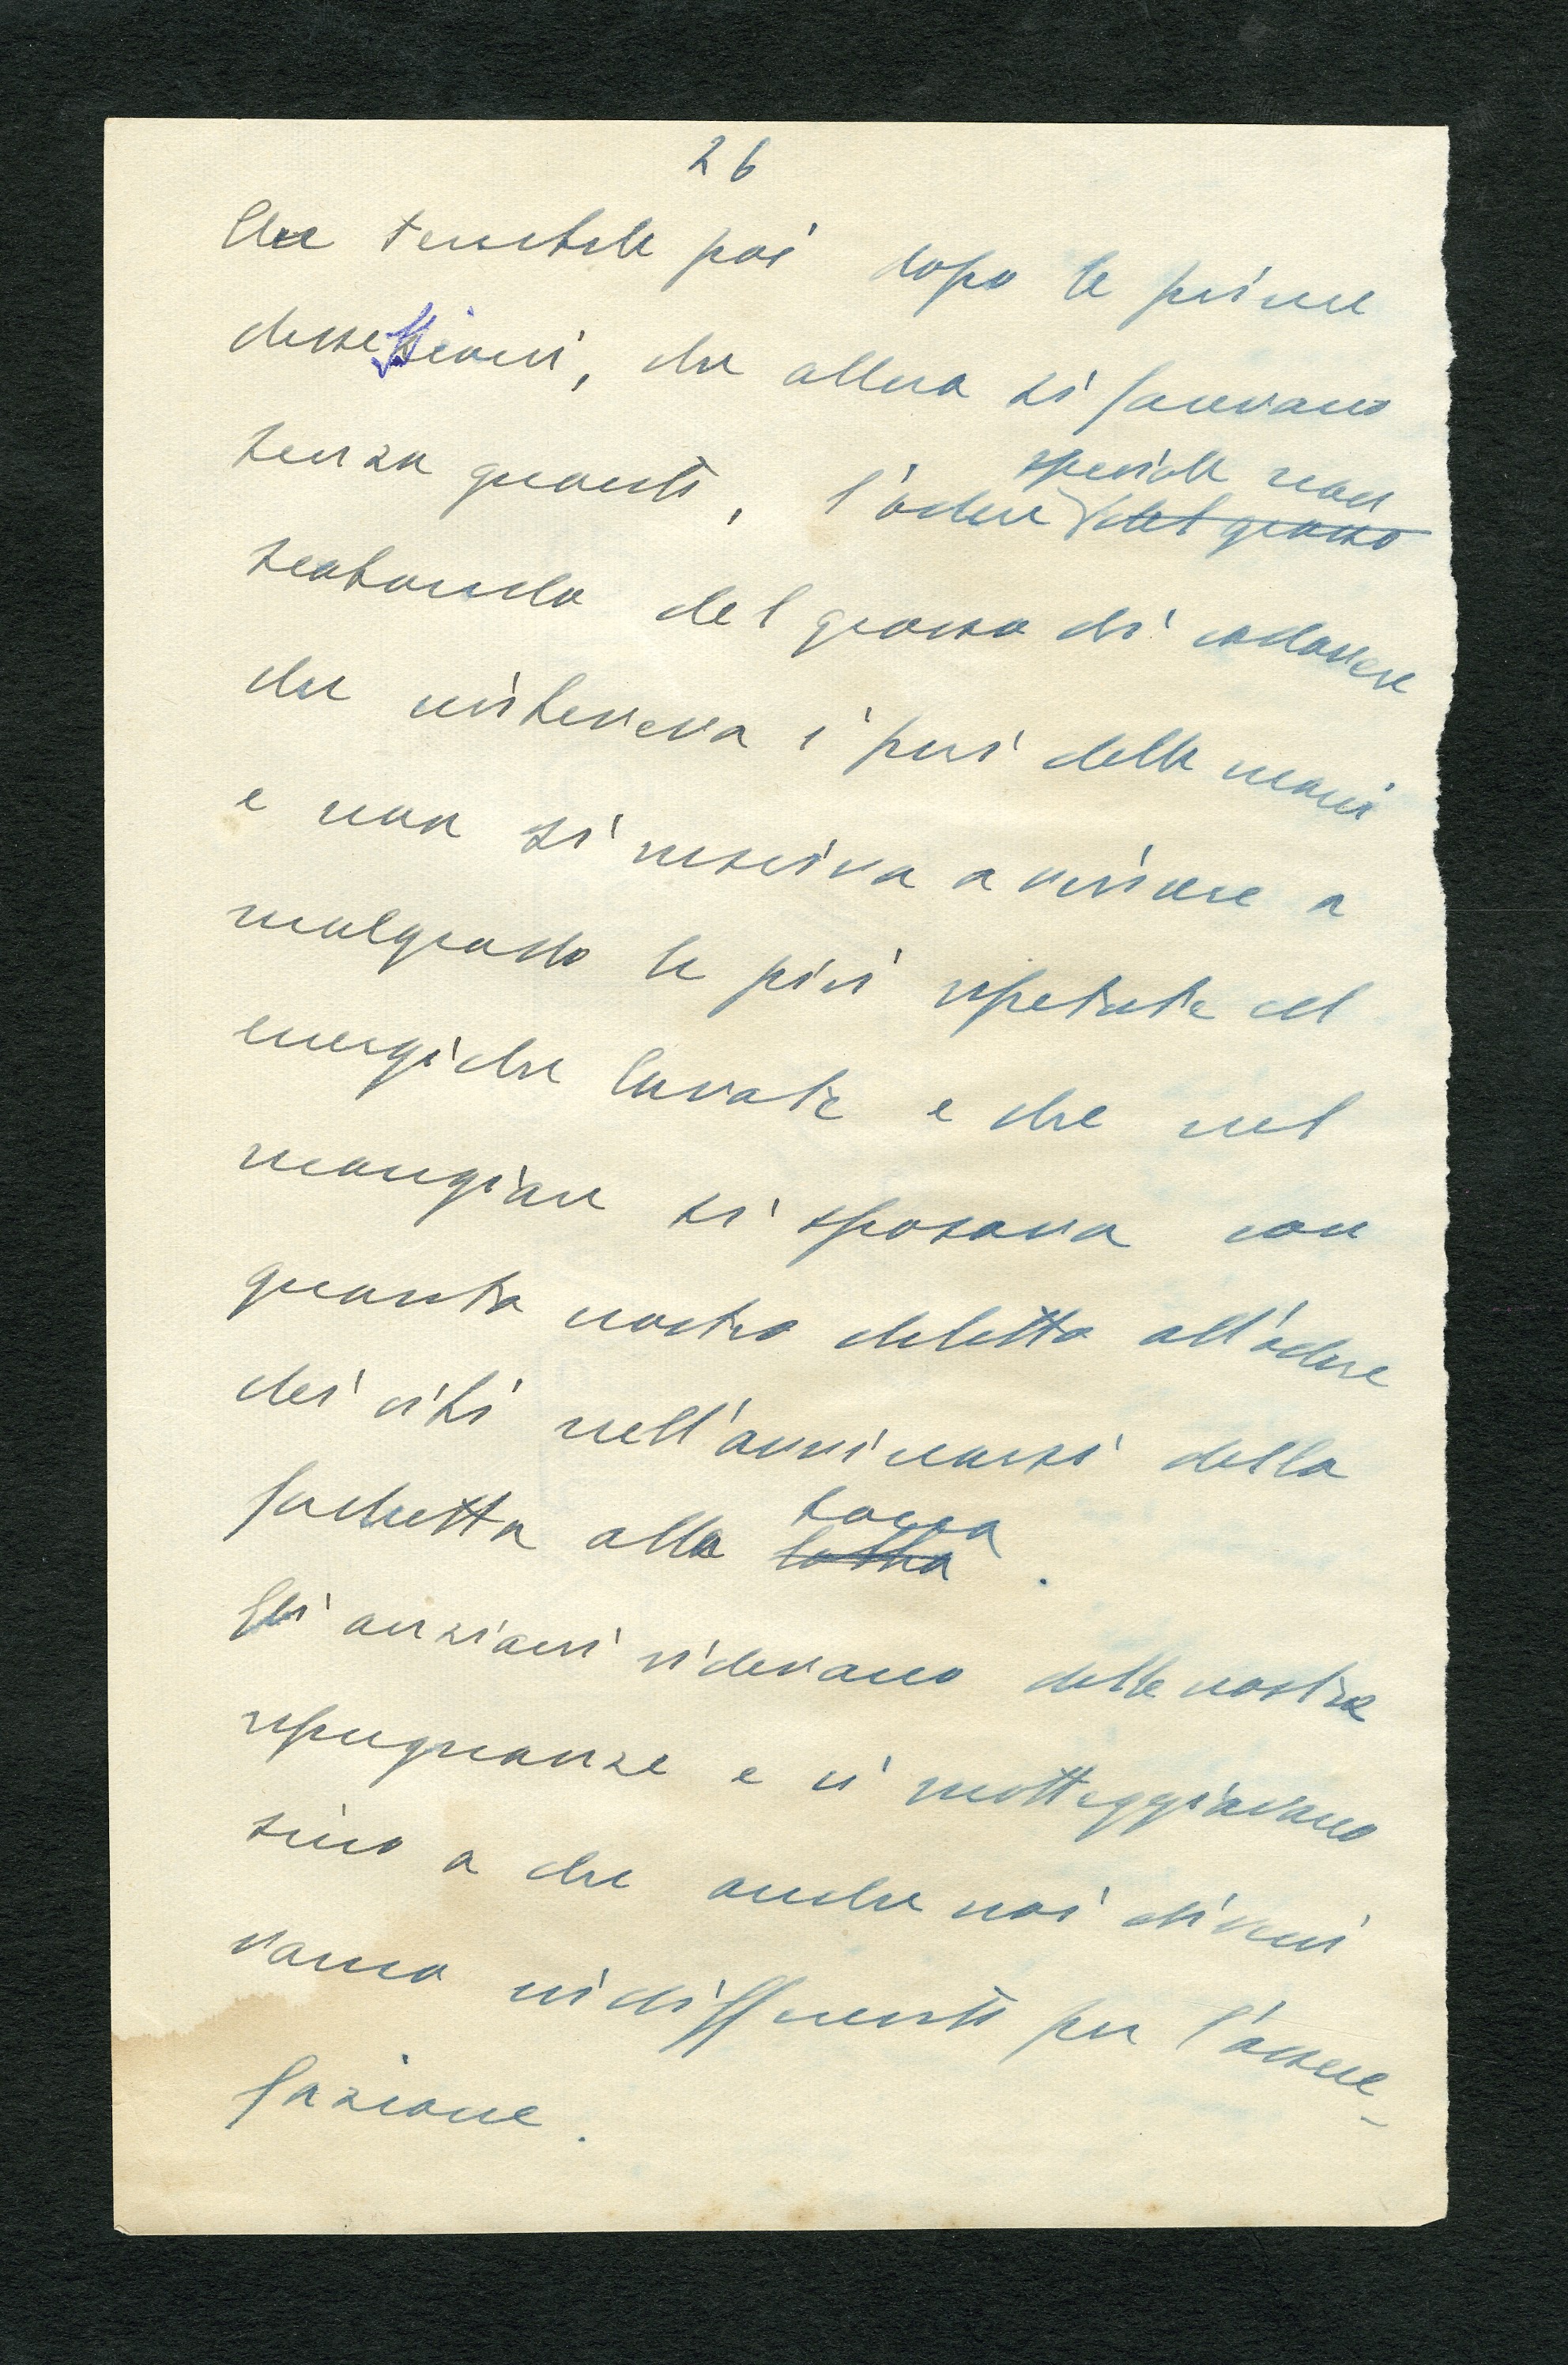 26
Che terribile poi dopo le prime
dissezioni, che allora si facevano
senza guanti, l'odore speciale non
del grasso
scatando del grasso di cadavere
che misteneva i pori delle mani
e non si riusciva a vincere a
malgrado le più ripetute ed
energiche lavate e che nel
mangiare si sposava con
quanto nostro diletto all'odore
dei cibi nell'avvicinarsi della
forchetta alla bocca.
Gli anziani ridevano delle nostre
repugnanze e ci motteggiavano
sino a che anche noi diveni
vamo indifferenti per l'assue-
fazione.